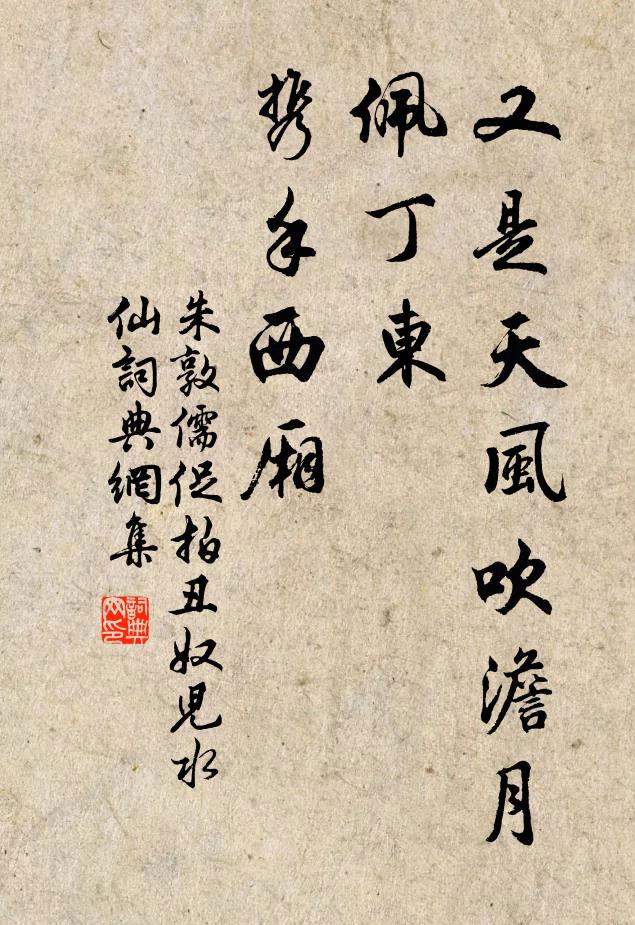 又是天風吹澹月
佩丁東
携手西厢
朱敦儒促拍丑奴兒水
仙詞典網集
詞典
网印